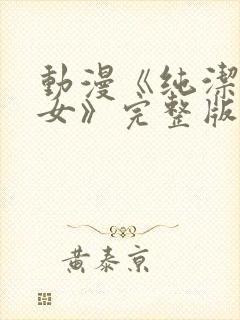 動漫《純潔
女》完整版
黃泰京